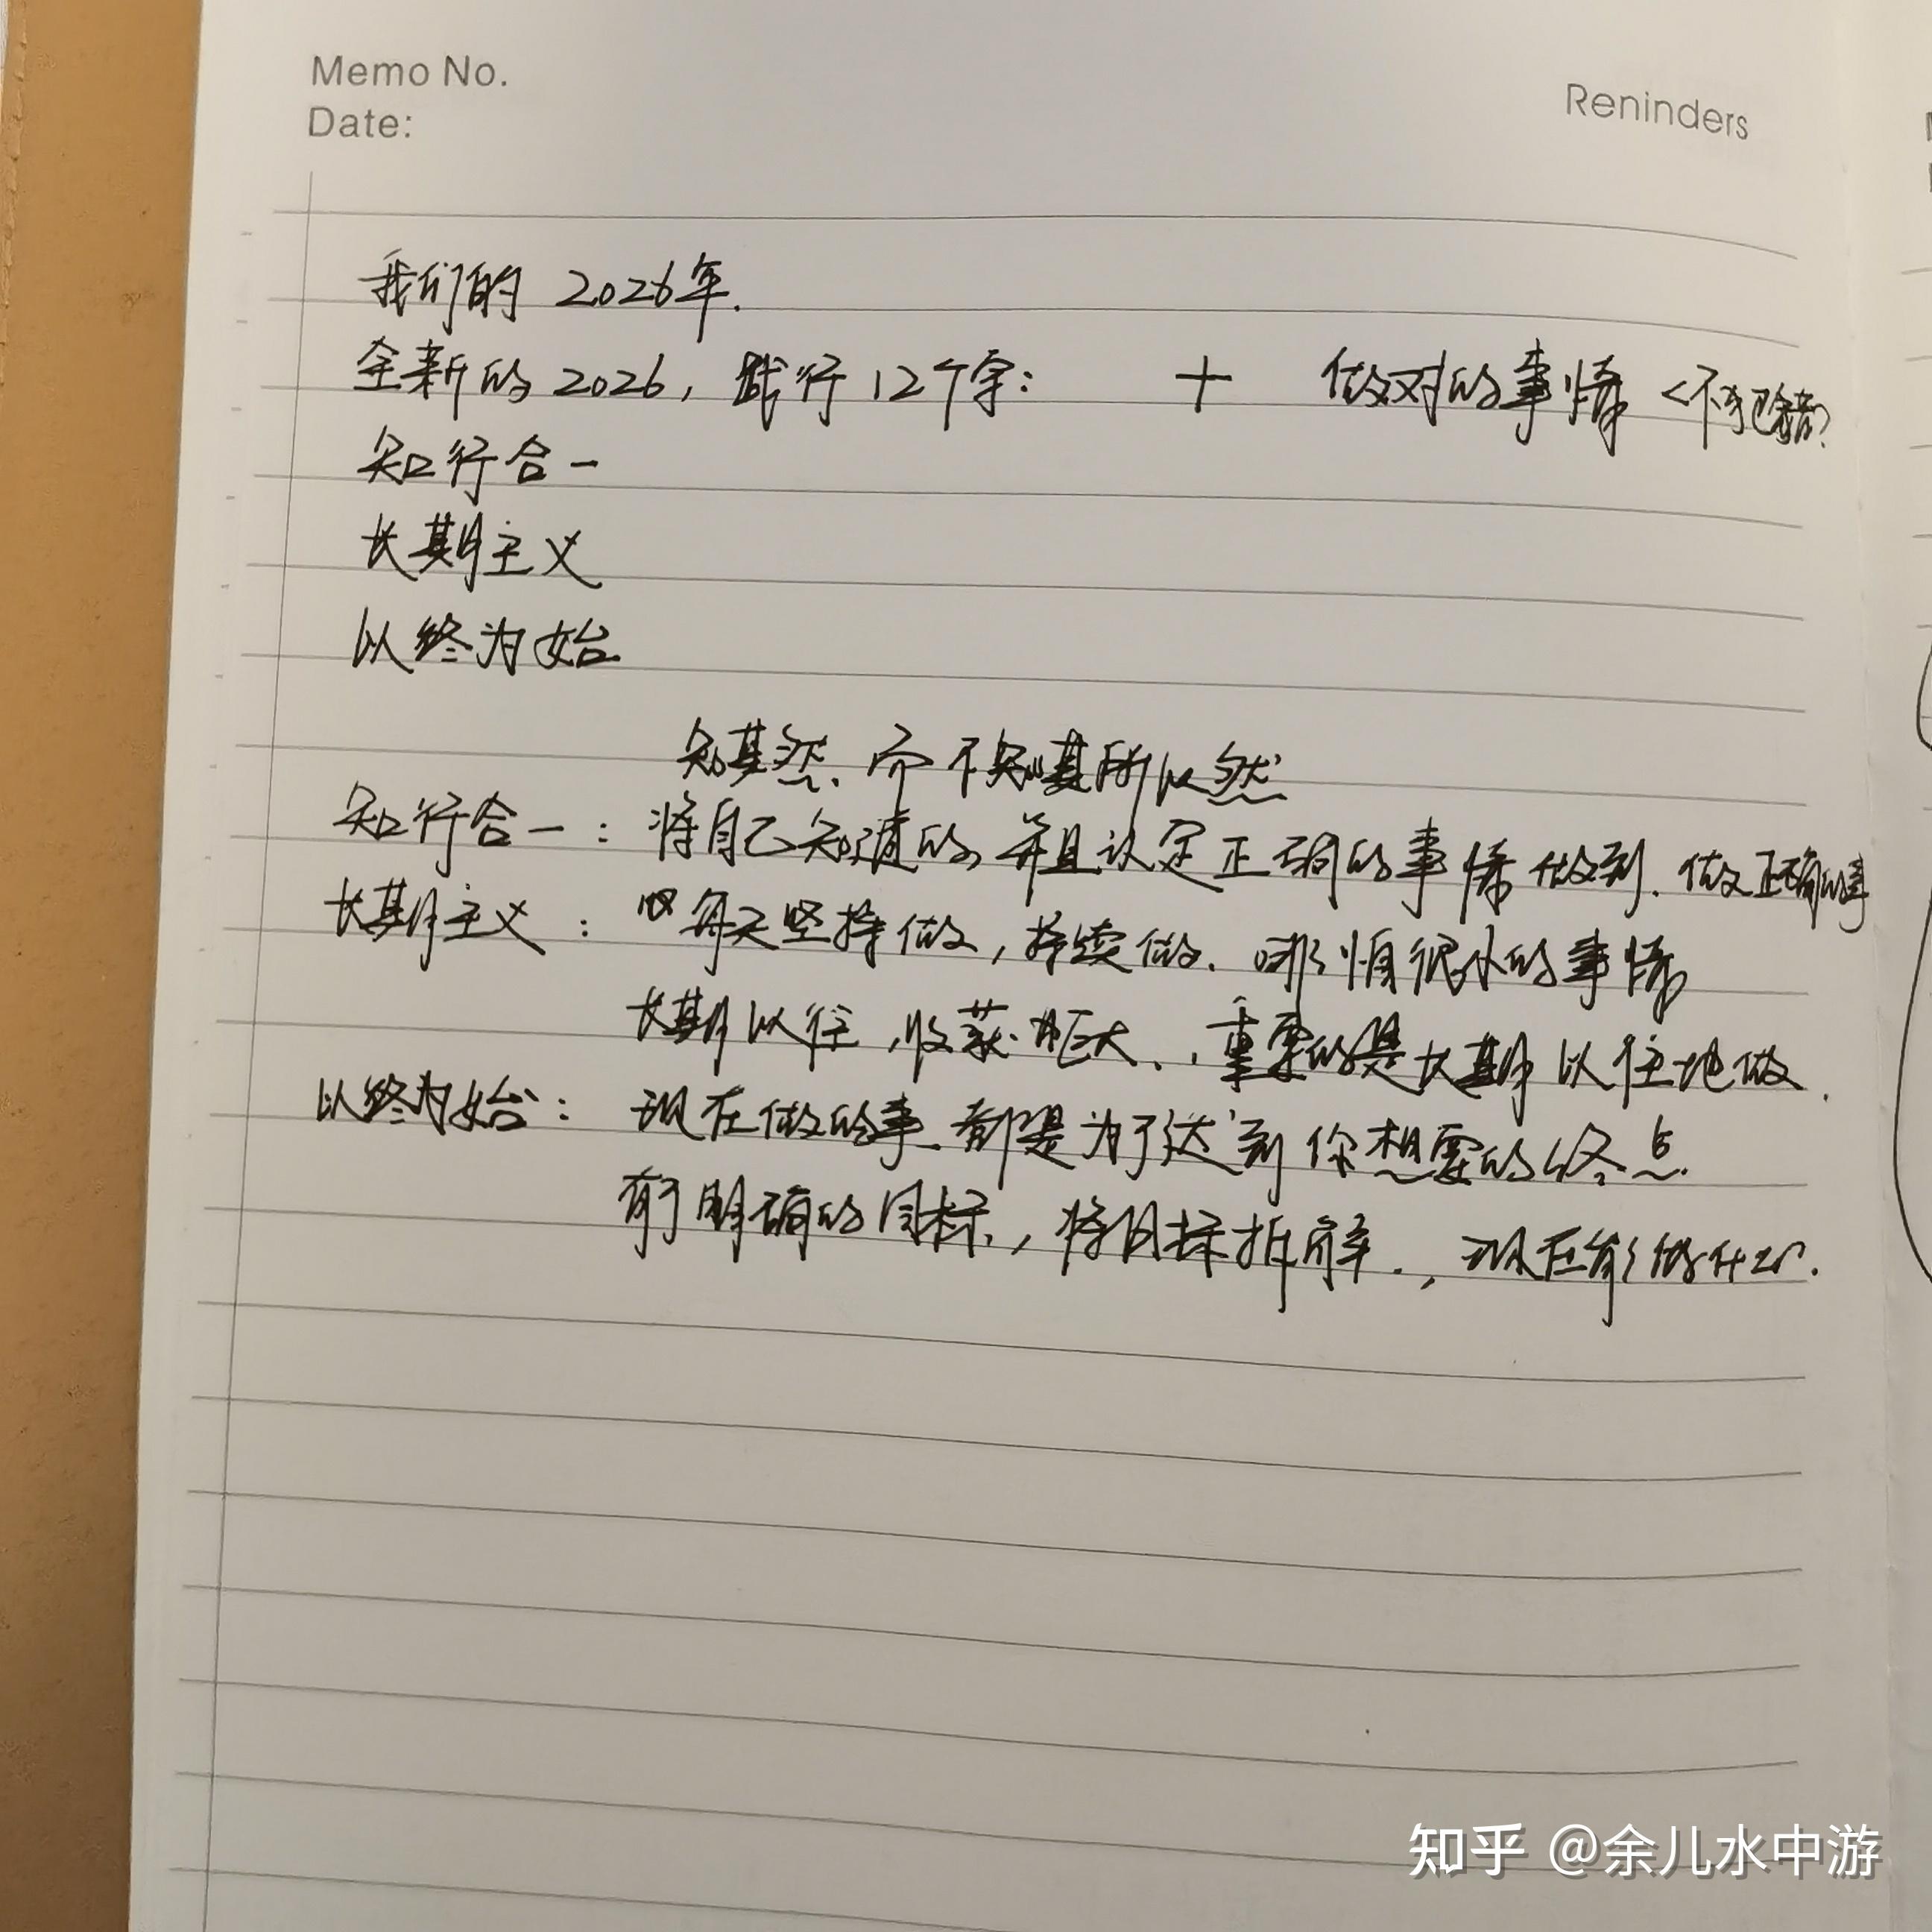 Memo No.
Date:
Reninders
我们的 2026年.
全新的2026, 践行12个字: + 做对的事情 <不犯错>
知行合一
长期主义
以终为始
知其然、而不知其所以然
知行合一: 将自己知道的, 并且认定正确的事情做到. 做正确的事
长期主义: 每天坚持做, 持续做. 哪怕很小的事情
长期以往, 收获巨大., 重要的是长期以往地做.
以终为始: 现在做的事. 都是为了达到你想要的终点.
有了明确的目标., 将目标拆解., 现在能做什么.
知乎 @余儿水中游